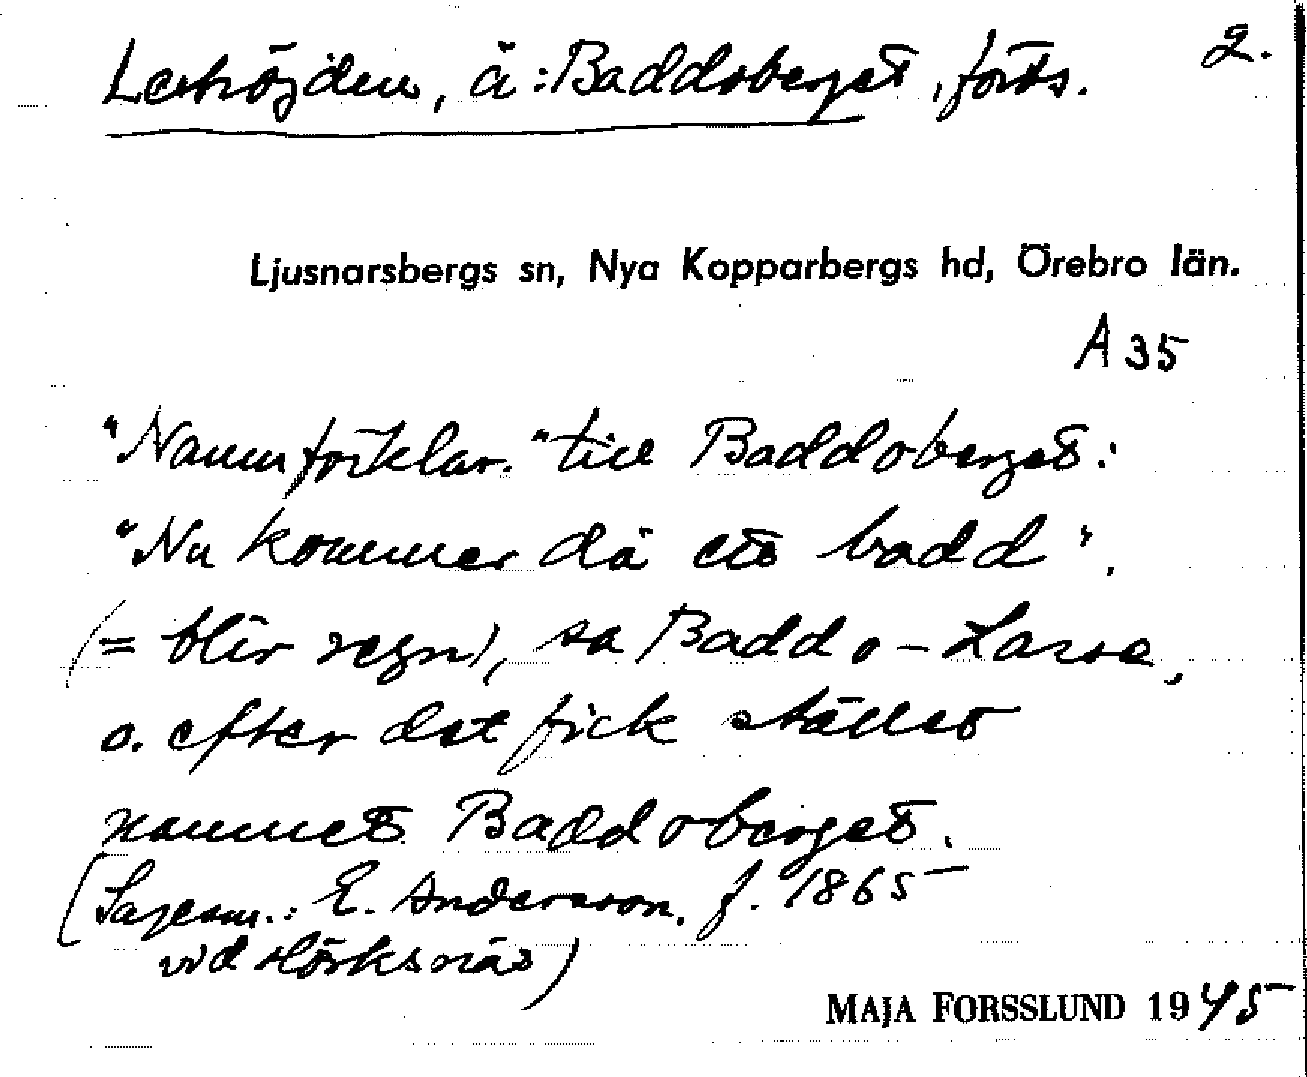 Lerhöjden, ä: Baddoberget, forts. 2.
Ljusnarsbergs sn, Nya Kopparbergs hd, Örebro län.
A 35
"Namnförklar." till Baddoberget:
"Nu kommer dä ett badd".
(= blir regn), sa Baddo-Lasse,
o. efter det fick stället
namnet Baddoberget.
(Sagesm.: E. Andersson, f. 1865
vid Hörksnäs)
MAJA FORSSLUND 1945